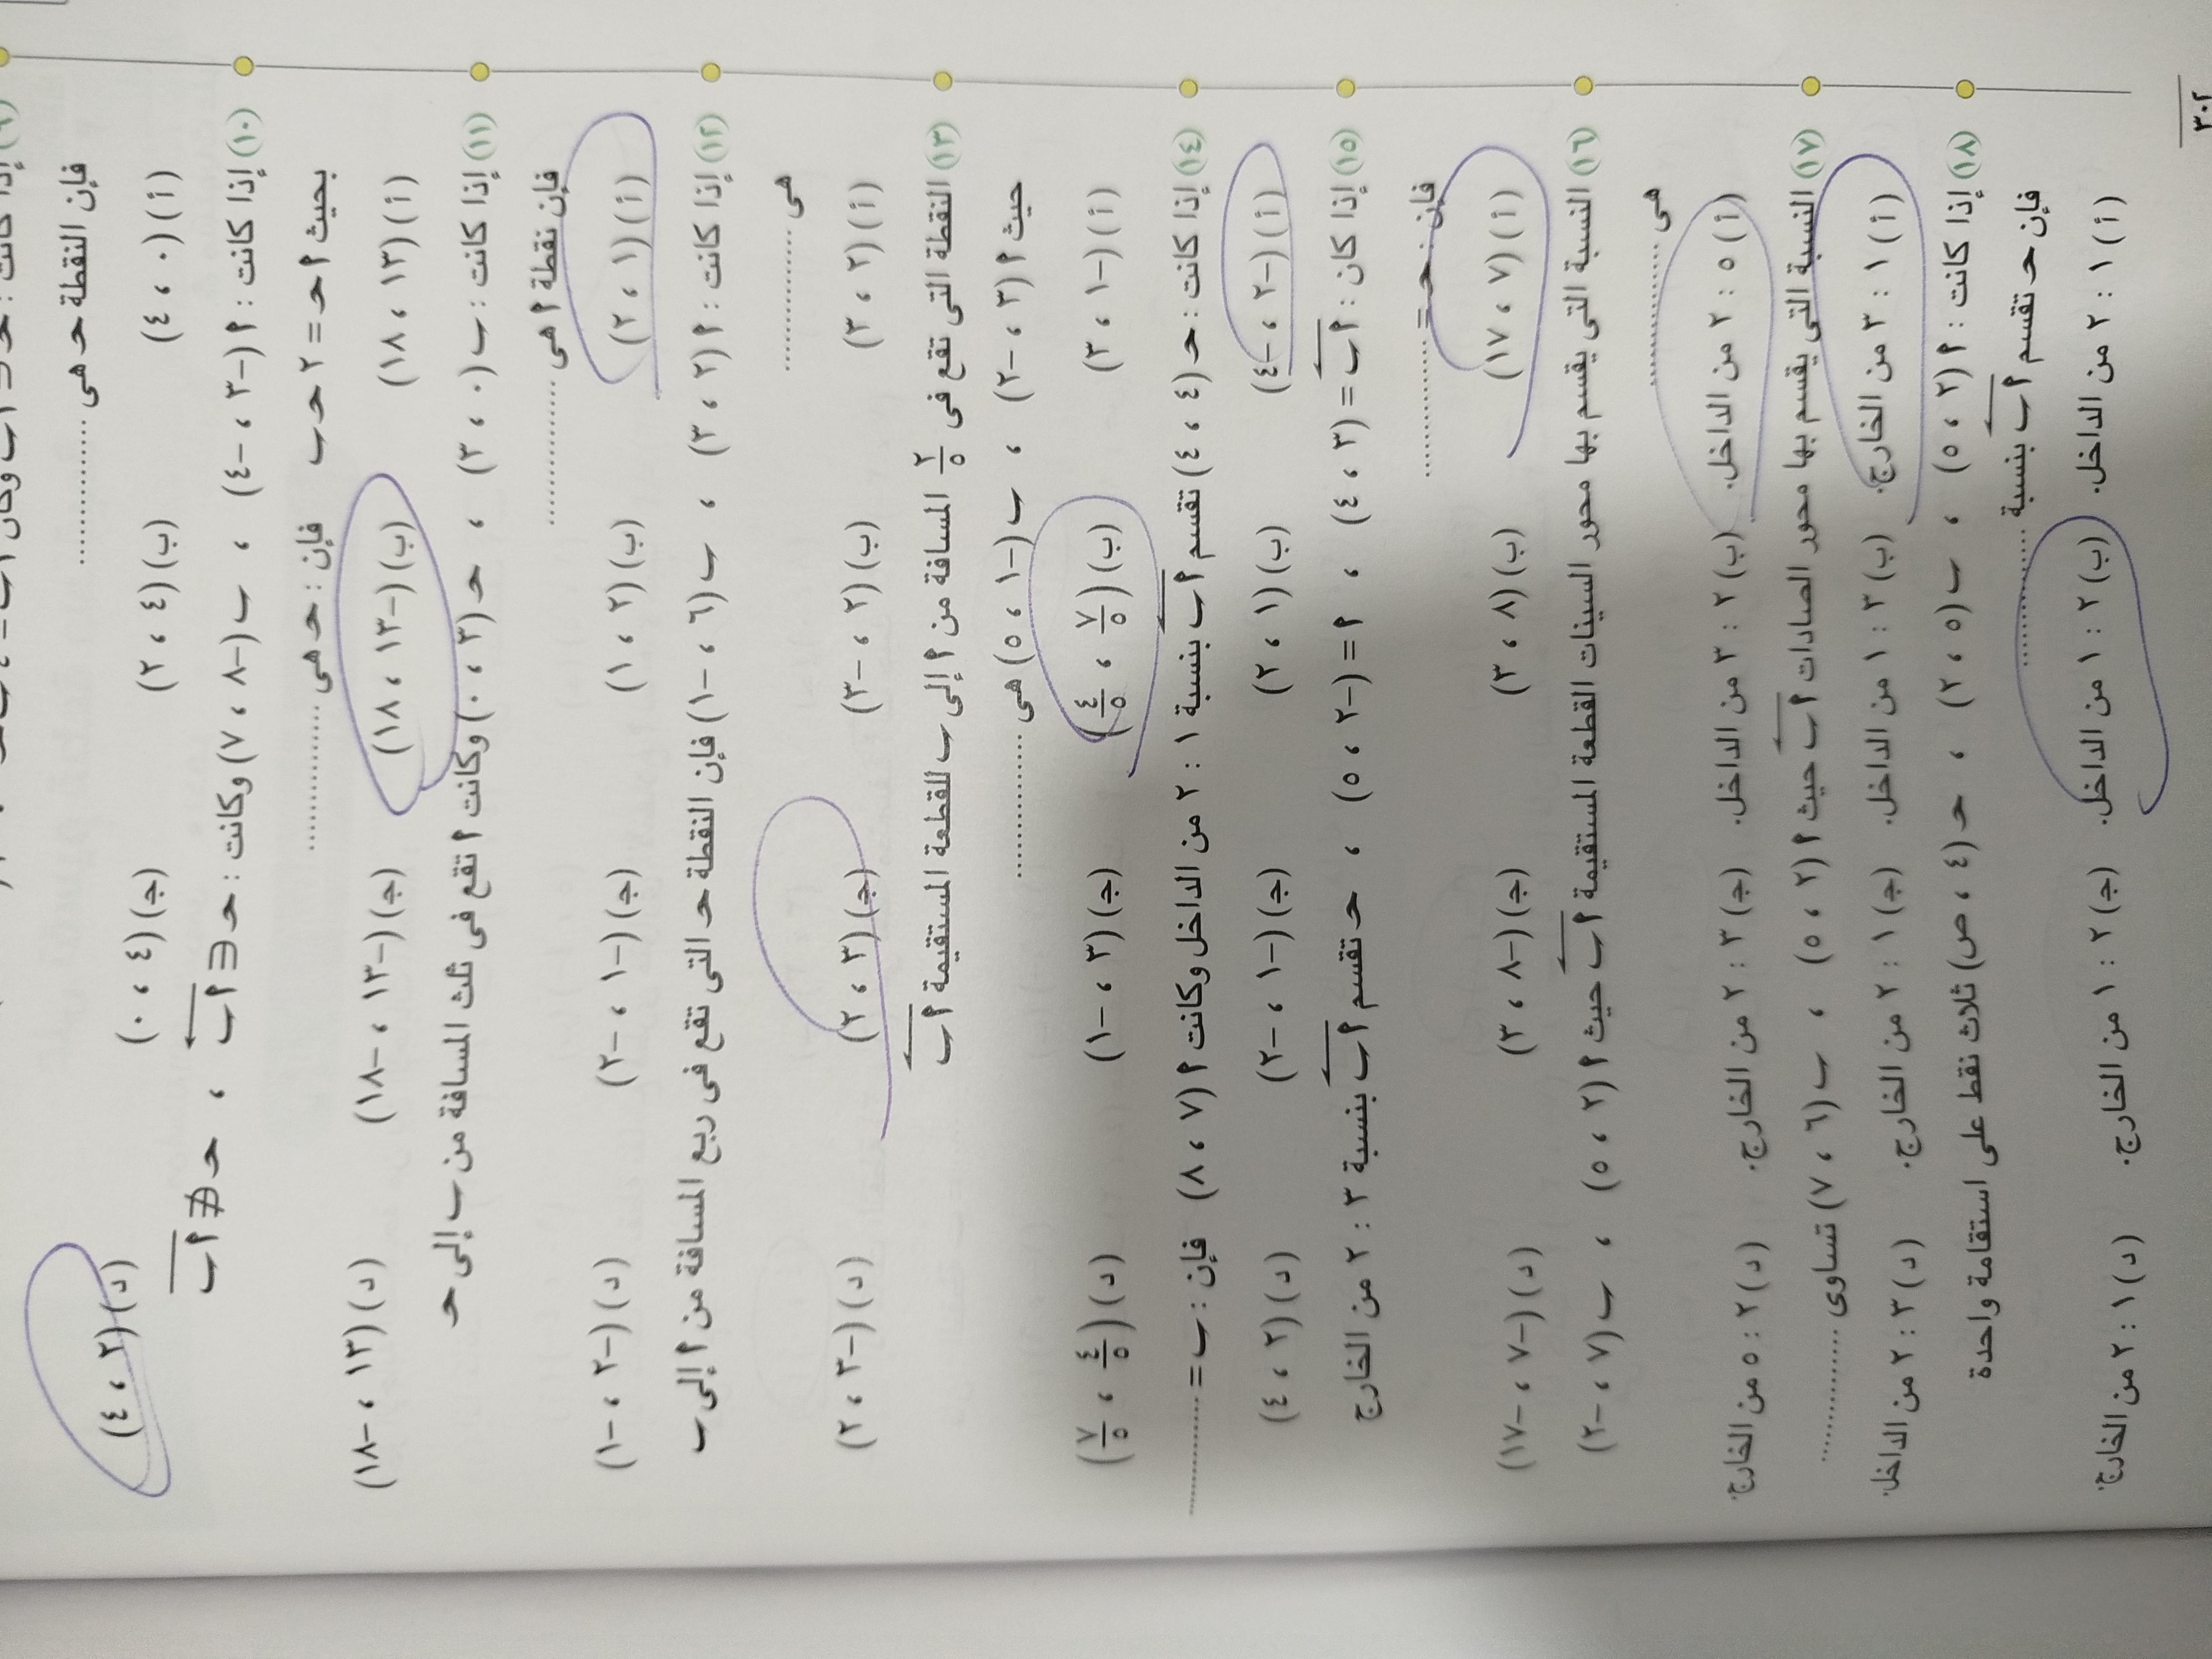 فإن النقطة حـ هى ..............
(أ) (٤ ، ٠) (ب) (٢ ، ٤) (جـ) (٠ ، ٤) (د) (٤ ، ٢)
(١٠) إذا كانت : ٢ (-٣ ، -٤) ، ب (-٨ ، ٧) وكانت : حـ ∈ أب ، حـ ∉ أب
بحيث أ حـ = ٢ حـ ب فإن : حـ هى ..............
(أ) (١٣ ، ١٨) (ب) (-١٣ ، ١٨) (جـ) (-١٣ ، -١٨) (د) (١٣ ، -١٨)
(١١) إذا كانت : ب (٠ ، ٣) ، حـ (٣ ، ٠) وكانت أ تقع فى ثلث المسافة من ب إلى حـ
فإن نقطة أ هى ..............
(أ) (١ ، ٢) (ب) (٢ ، ١) (جـ) (-١ ، -٢) (د) (-٢ ، -١)
(١٢) إذا كانت : أ (٢ ، ٣) ، ب (٦ ، -١) فإن النقطة حـ التى تقع فى ربع المسافة من أ إلى ب
هى ..............
(أ) (٢ ، ٣) (ب) (٢ ، -٣) (جـ) (٣ ، ٢) (د) (-٣ ، ٢)
(١٣) النقطة التى تقع فى ٢/٥ المسافة من أ إلى ب للقطعة المستقيمة أب
حيث أ (٣ ، -٢) ، ب (-١ ، ٥) هى ..............
(أ) (-١ ، ٣) (ب) (٧/٥ ، ٤/٥) (جـ) (٣ ، -١) (د) (٤/٥ ، ٧/٥)
(١٤) إذا كانت : حـ (٤ ، ٤) تقسم أب بنسبة ١ : ٢ من الداخل وكانت أ (٧ ، ٨) فإن : ب = ..............
(أ) (-٢ ، -٤) (ب) (١ ، ٢) (جـ) (-١ ، -٢) (د) (٢ ، ٤)
(١٥) إذا كان : أب = (٣ ، ٤) ، أ = (-٢ ، ٥) ، حـ تقسم أب بنسبة ٣ : ٢ من الخارج
فإن : حـ = ..............
(أ) (٧ ، ١٧) (ب) (٨ ، ٣) (جـ) (-٨ ، ٣) (د) (-٧ ، -١٧)
(١٦) النسبة التى يقسم بها محور السينات القطعة المستقيمة أب حيث أ (٢ ، ٥) ، ب (٧ ، -٢)
هى ..............
(أ) ٥ : ٢ من الداخل. (ب) ٢ : ٣ من الداخل. (جـ) ٣ : ٢ من الخارج. (د) ٢ : ٥ من الخارج.
(١٧) النسبة التى يقسم بها محور الصادات أب حيث أ (٢ ، ٥) ، ب (٦ ، ٧) تساوى ..............
(أ) ١ : ٣ من الخارج. (ب) ٣ : ١ من الداخل. (جـ) ١ : ٢ من الخارج. (د) ٣ : ٢ من الداخل.
(١٨) إذا كانت : أ (٢ ، ٥) ، ب (٥ ، ٢) ، حـ (٤ ، ص) ثلاث نقط على استقامة واحدة
فإن حـ تقسم أب بنسبة ..............
(أ) ١ : ٢ من الداخل. (ب) ٢ : ١ من الداخل. (جـ) ٢ : ١ من الخارج. (د) ١ : ٢ من الخارج.
٣٠٢